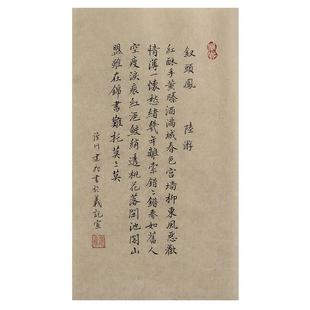 釵頭鳳　陸游
紅酥手黃縢酒滿城春色宮墻柳東風惡歡
情薄一懷愁緒幾年離索錯〻錯春如舊人
空瘦淚痕紅浥鮫綃透桃花落閒池閣山
盟雖在錦書難托莫〻莫
川 書於義